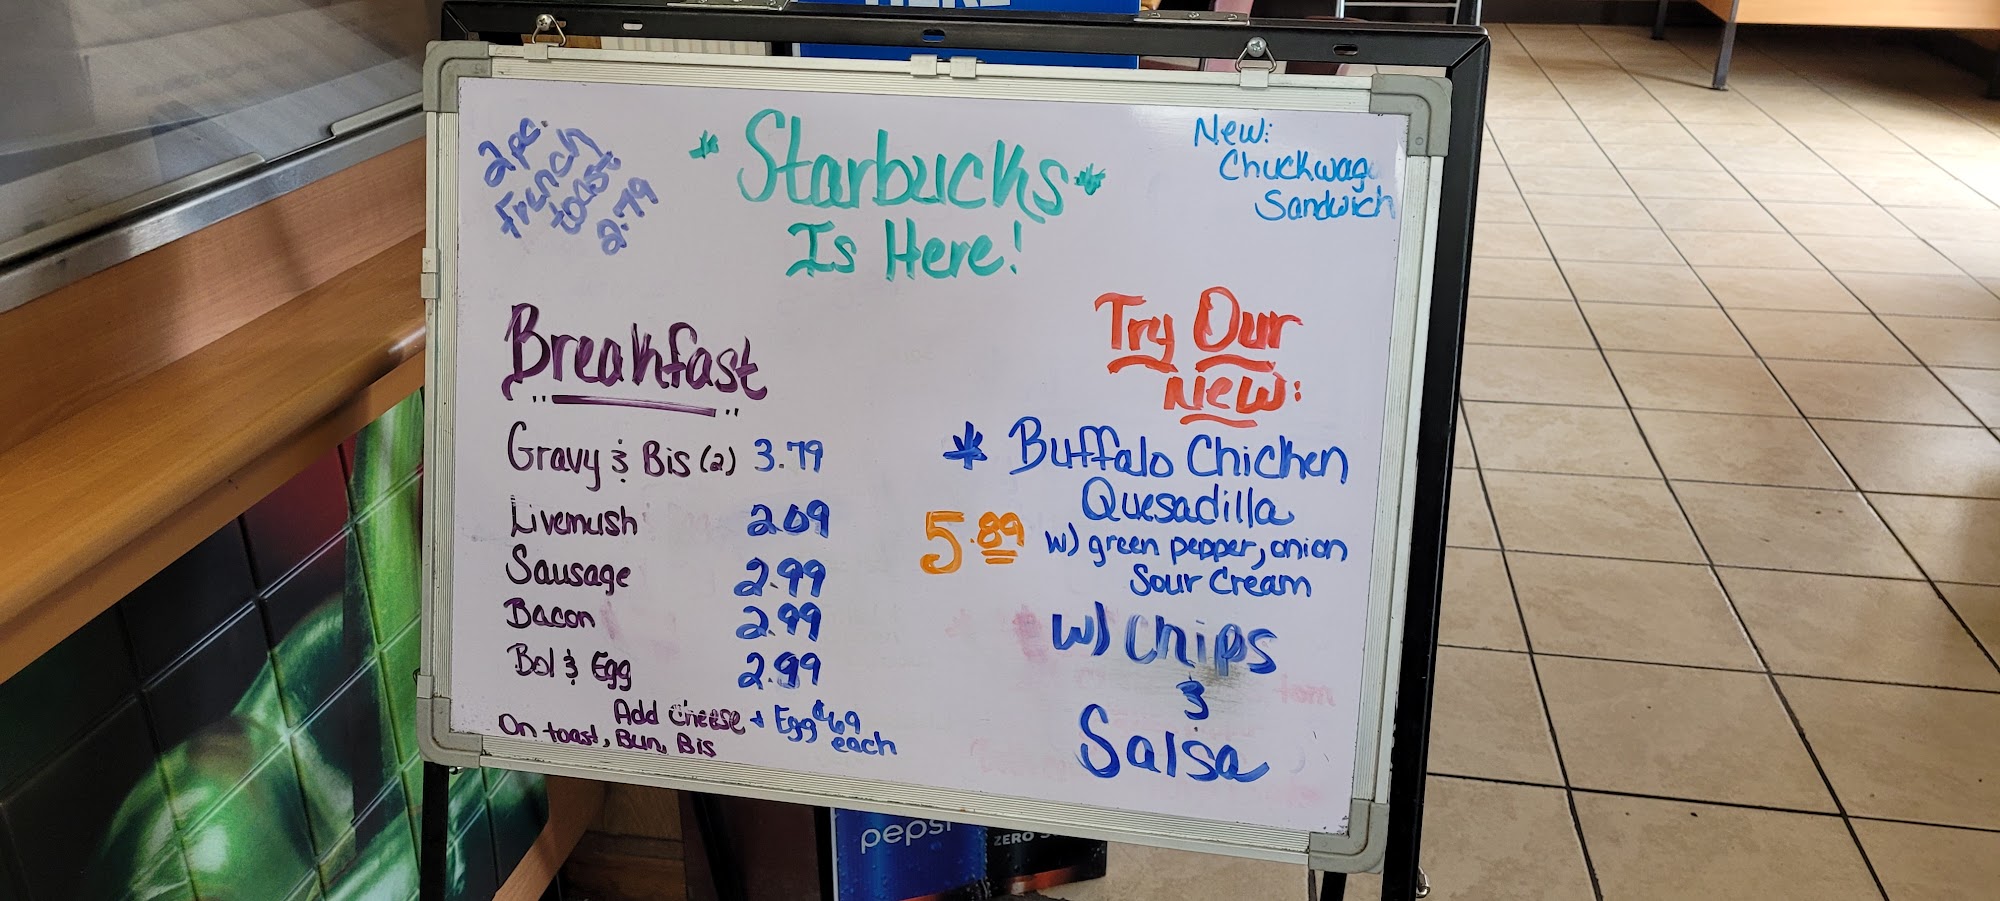 HERE
2 pc.
French
toast
2.79
* Starbucks *
Is Here!
New:
Sandwich
Breakfast
Gravy & Bis (2) 3.79
Livemush 2.09
Sausage 2.99
Bacon 2.99
Bol & Egg 2.99
Add Cheese + Egg .69
each
On toast, Bun, Bis
Try Our
New:
* Buffalo Chicken
Quesadilla
5.89 w) green pepper, onion
Sour Cream
w) Chips
&
Salsa
pepsi
ZERO